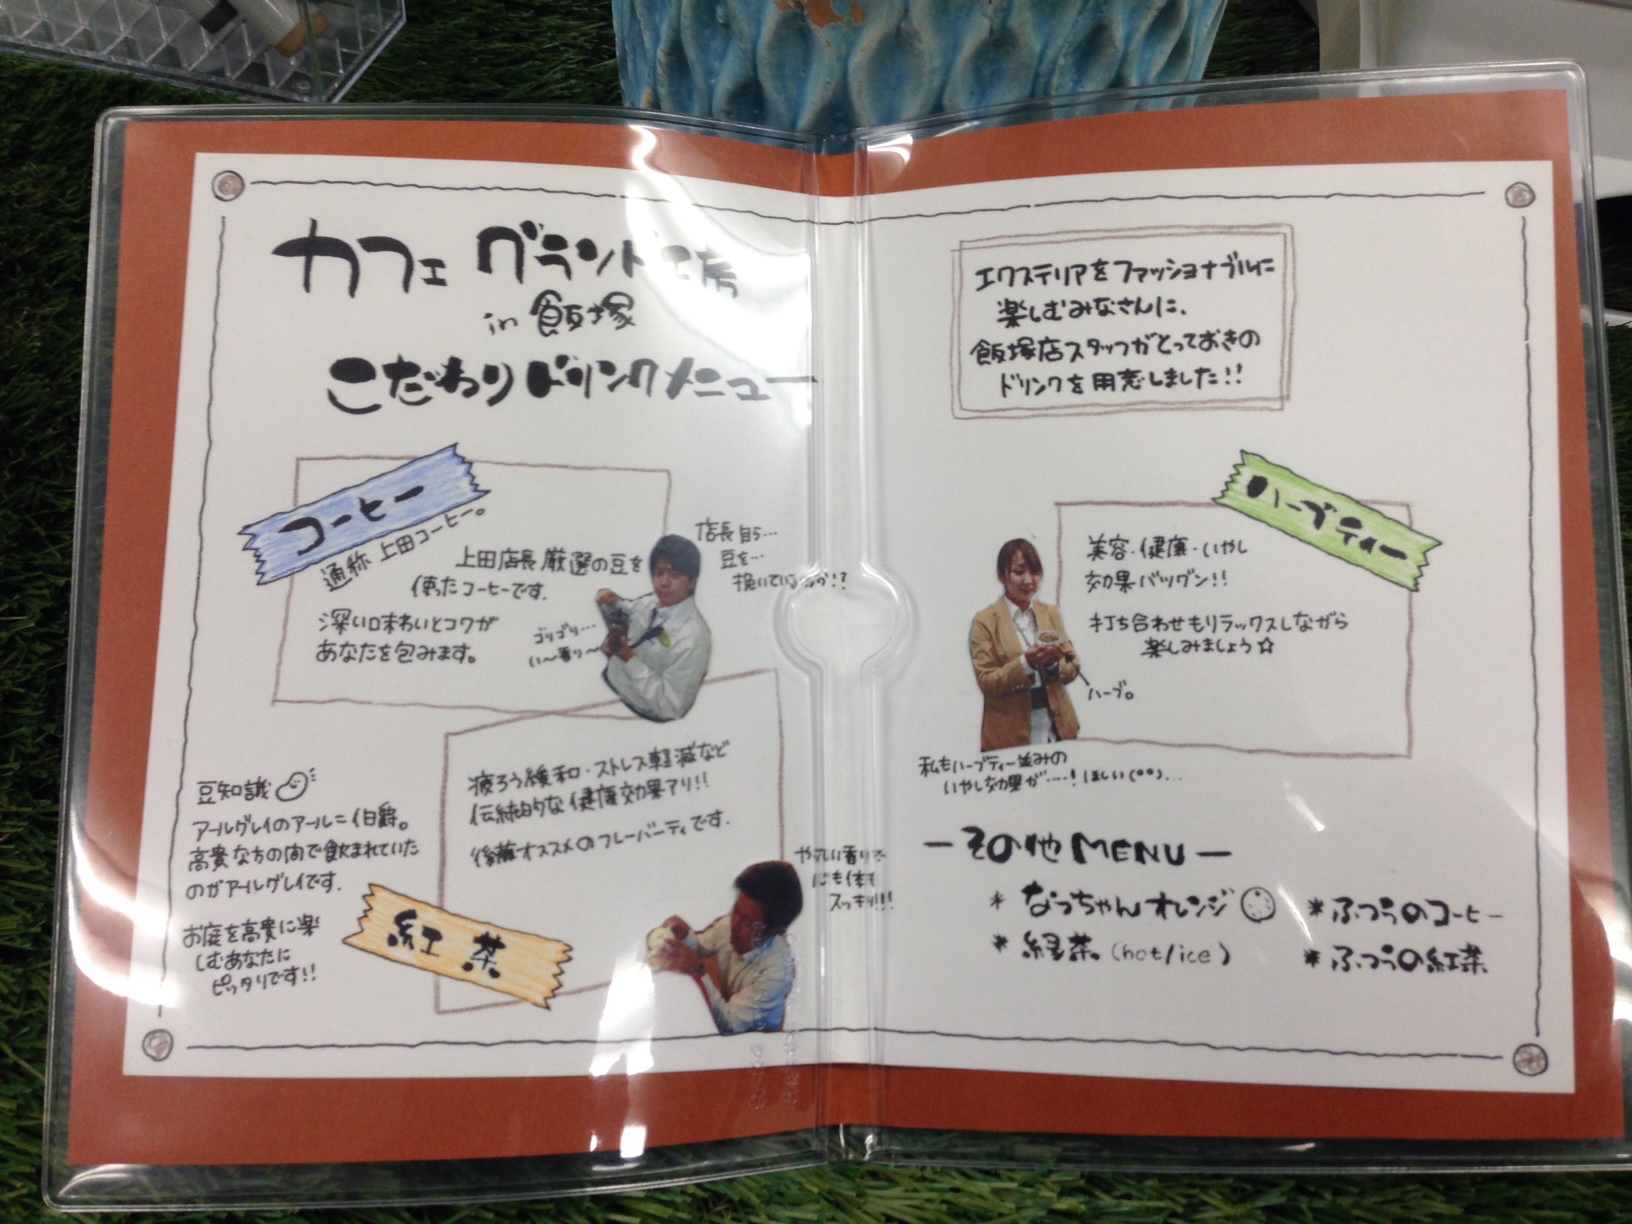 カフェ グランド工房
in 飯塚
こだわりドリンクメニュー
コーヒー
通称 上田コーヒー。
上田店長厳選の豆を
使ったコーヒーです。
深い味わいとコクが
あなたを包みます。
店長自ら…
豆を…
挽いているのか!?
ゴリゴリ…
い〜香り〜
疲ろう緩和・ストレス軽減など
伝統的な健康効果アリ!!
後藤オススメのフレーバーティです。
紅茶
やさしい香りで
心も体も
スッキリ!!!
豆知識
アールグレイのアール=伯爵。
高貴な方の間で飲まれていた
のがアールグレイです。
お庭を高貴に楽
しむあなたに
ピッタリです!!
エクステリアをファッショナブルに
楽しむみなさんに、
飯塚店スタッフがとっておきの
ドリンクを用意しました!!
ハーブティー
美容・健康・いやし
効果バツグン!!
打ち合わせもリラックスしながら
楽しみましょう☆
ハーブ。
私もハーブティー並みの
いやし効果が…! ほしい(°°)…
ーその他 MENUー
* なっちゃんオレンジ
* 緑茶。(hot/ice)
* ふつうのコーヒー
* ふつうの紅茶